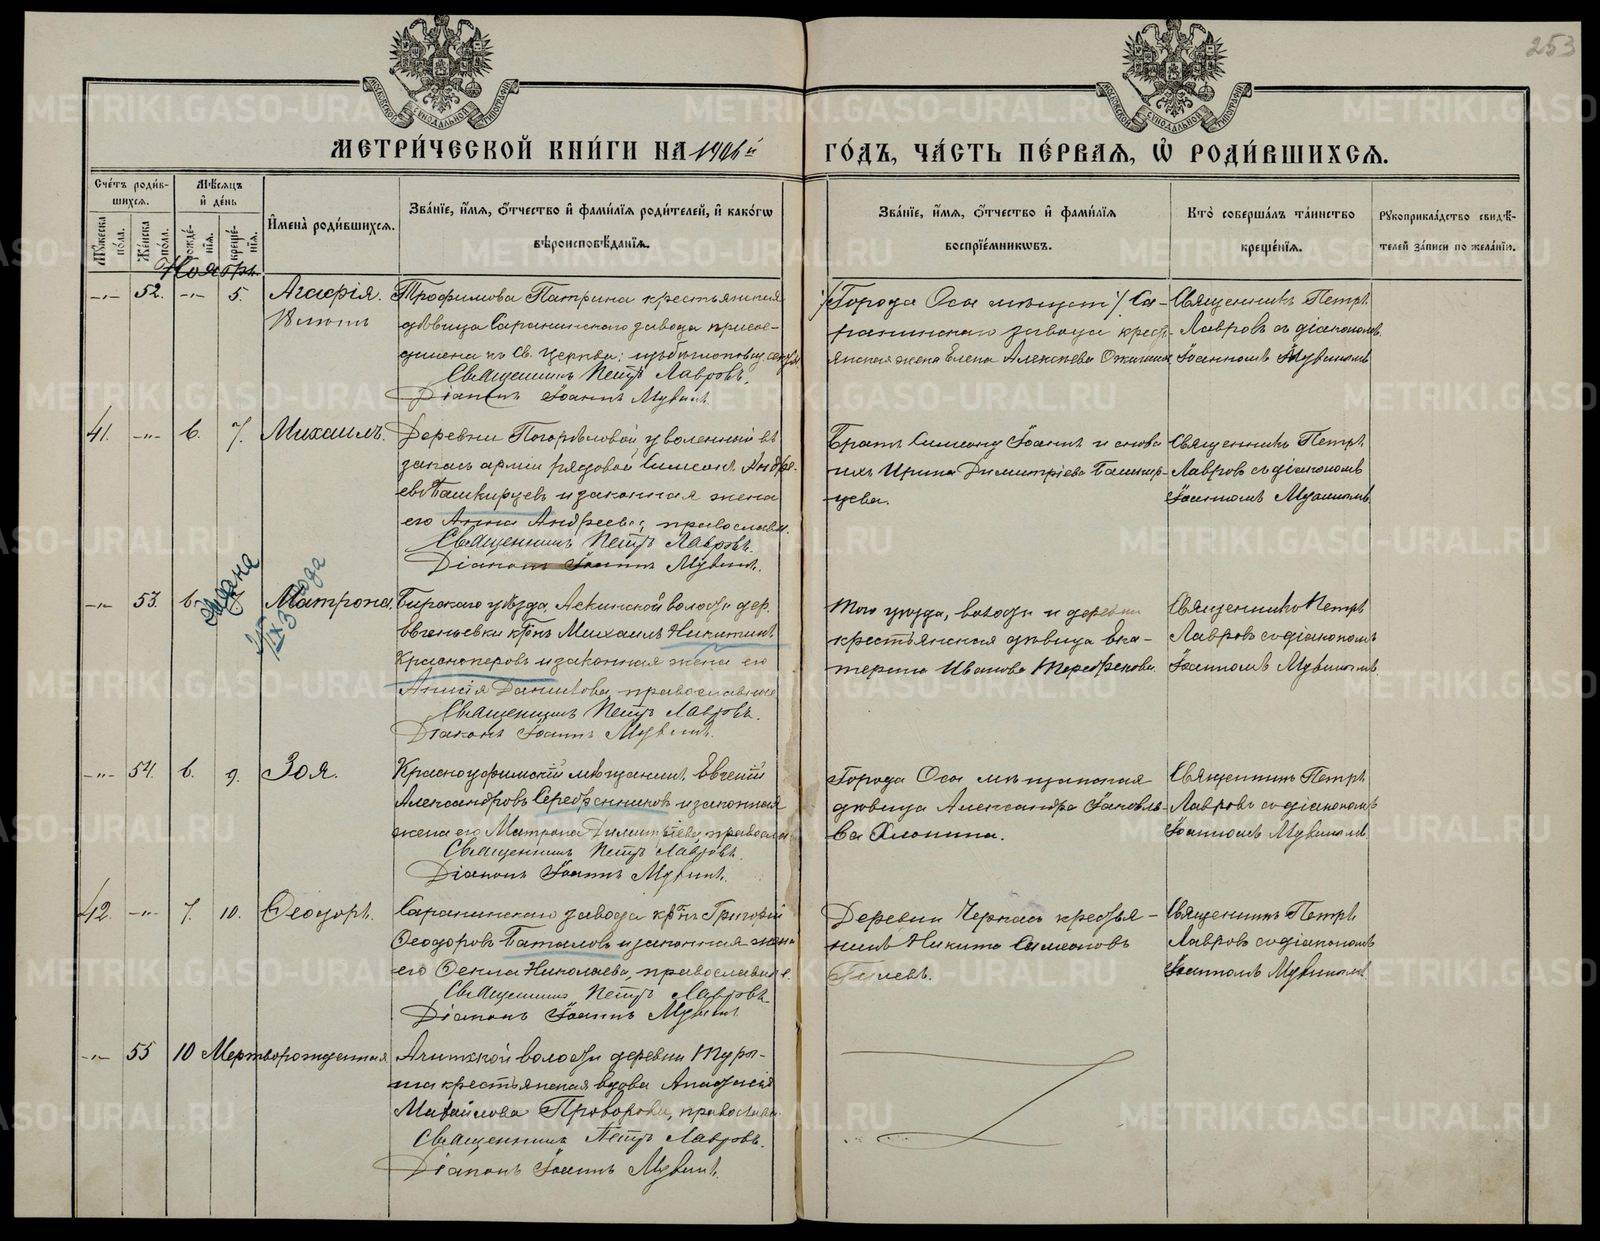 253
МЕТРИ́ЧЕСКОЙ КНИ́ГИ НА 1906й ГО́ДЪ, ЧА́СТЬ ПЕ́РВАѦ, Ѡ҆ РОДИ́ВШИХСѦ.
Сче́тъ роди́в-
шихсѧ.
Мѣ́сѧцъ
и҆ де́нь
Мꙋ́жеска
по́ла.
Же́нска
по́ла.
рожде́-
нїѧ.
креще́-
нїѧ.
И҆мена̀ роди́вшихсѧ.
Зва́нїе, и҆́мѧ, ѻ҆́тчество и҆ фами́лїѧ роди́телей, и҆ како́гѡ
вѣроисповѣ́данїѧ.
Зва́нїе, и҆́мѧ, ѻ҆́тчество и҆ фами́лїѧ
воспрїе́мникѡвъ.
Кто̀ соверша́лъ та́инство
креще́нїѧ.
Рꙋкоприкла́дство свидѣ́-
телей за́писи по жела́нїю.
Ноябрь
52. 5. Агафія.
Трофимова Патрина крестьянская
дѣвица Саранинскаго завода присое-
динена къ Св. Церкви:
Священникъ Петръ Лавровъ.
Діаконъ Іоаннъ Мувинъ.
Города Осы Са-
ранинскаго завода крест-
янская жена Елена Алексѣева
Священникъ Петръ
Лавровъ съ діакономъ
Іоанномъ Мувинымъ
41. 6. 7. Михаилъ.
Деревни Погорѣловой уволенный въ
запасъ арміи рядовой Симеонъ Андре-
евъ Башкирцевъ и законная жена
его Анна Андреева, православн.
Священникъ Петръ Лавровъ.
Діаконъ Іоаннъ Мувинъ.
Братъ Симеону Іоаннъ и сноха
ихъ Ирина Димитріева Башкир-
цева.
Священникъ Петръ
Лавровъ съ діакономъ
Іоанномъ Мувинымъ
53. 6. Матрона.
выдана
Бирскаго уѣзда, Аскинской волости дер.
Евгеньевки кр-нъ Михаилъ Никитинъ
Красноперовъ и законная жена его
Анисія Данилова, православные
Священникъ Петръ Лавровъ.
Діаконъ Іоаннъ Мувинъ.
Того уѣзда, волости и деревни
крестьянская дѣвица Ека-
терина Иванова
Священникъ Петръ
Лавровъ съ діакономъ
Іоанномъ Мувинымъ.
54. 6. 9. Зоя.
Красноуфимскій мѣщанинъ Евгеній
Александровъ Серебренниковъ и законная
жена его Матрона Димитріева, правосла.
Священникъ Петръ Лавровъ.
Діаконъ Іоаннъ Мувинъ.
Города Осы мѣщанская
дѣвица Александра Іаковле-
ва Хлопина.
Священникъ Петръ
Лавровъ съ діакономъ
Іоанномъ Мувинымъ
42. 7. 10. Ѳеодоръ.
Саранинскаго завода кр-нъ Григорій
Ѳеодоровъ Баталовъ и законная жена
его Ѳекла Николаева, православные.
Священникъ Петръ Лавровъ.
Діаконъ Іоаннъ Мувинъ
Деревни Черкасъ крестья-
нинъ Никита Симеоновъ
Гилевъ.
Священникъ Петръ
Лавровъ съ діакономъ
Іоанномъ Мувинымъ
55 10 Мертворожденная
Ачитской волости деревни Туры-
ша крестьянская вдова Анастасія
Михайлова Проворова, православн.
Священникъ Петръ Лавровъ.
Діаконъ Іоаннъ Мувинъ.
METRIKI.GASO-URAL.RU